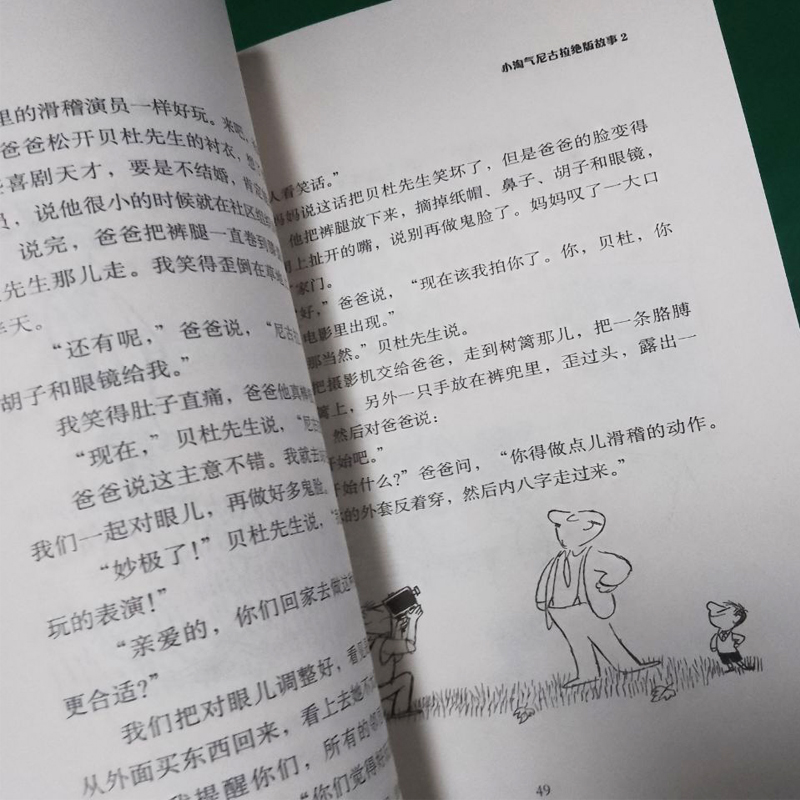 里的滑稽演员一样好玩。来吧，
爸爸松开贝杜先生的衬衣，想了
喜剧天才，要是不结婚，肯定
员，说他很小的时候就在社区组
说完，爸爸把裤腿一直卷到膝
先生那儿走。我笑得歪倒在草
天。
“还有呢，”爸爸说，“尼古
胡子和眼镜给我。”
我笑得肚子直痛，爸爸他真
“现在，”贝杜先生说，“尼古
爸爸说这主意不错。我就去
我们一起对眼儿，再做好多鬼脸。
“妙极了！”贝杜先生说，
玩的表演！”
“亲爱的，你们回家去做这
更合适？”
我们把对眼儿调整好，看见
从外面买东西回来，看上去她不
我提醒你们，所有的邻
“你们觉得
小淘气尼古拉绝版故事 2
人看笑话。”
妈妈说这话把贝杜先生笑坏了，但是爸爸的脸变得
他把裤腿放下来，摘掉纸帽、鼻子、胡子和眼镜，
上扯开的嘴，说别再做鬼脸了。妈妈叹了一大口
家门。
好，”爸爸说，“现在该我拍你了。你，贝杜，你
电影里出现。”
那当然。”贝杜先生说。
把摄影机交给爸爸，走到树篱那儿，把一条胳膊
篱上，另外一只手放在裤兜里，歪过头，露出一
然后对爸爸说：
开始吧。”
开始什么？”爸爸问，“你得做点儿滑稽的动作。
的外套反着穿，然后内八字走过来。”
49